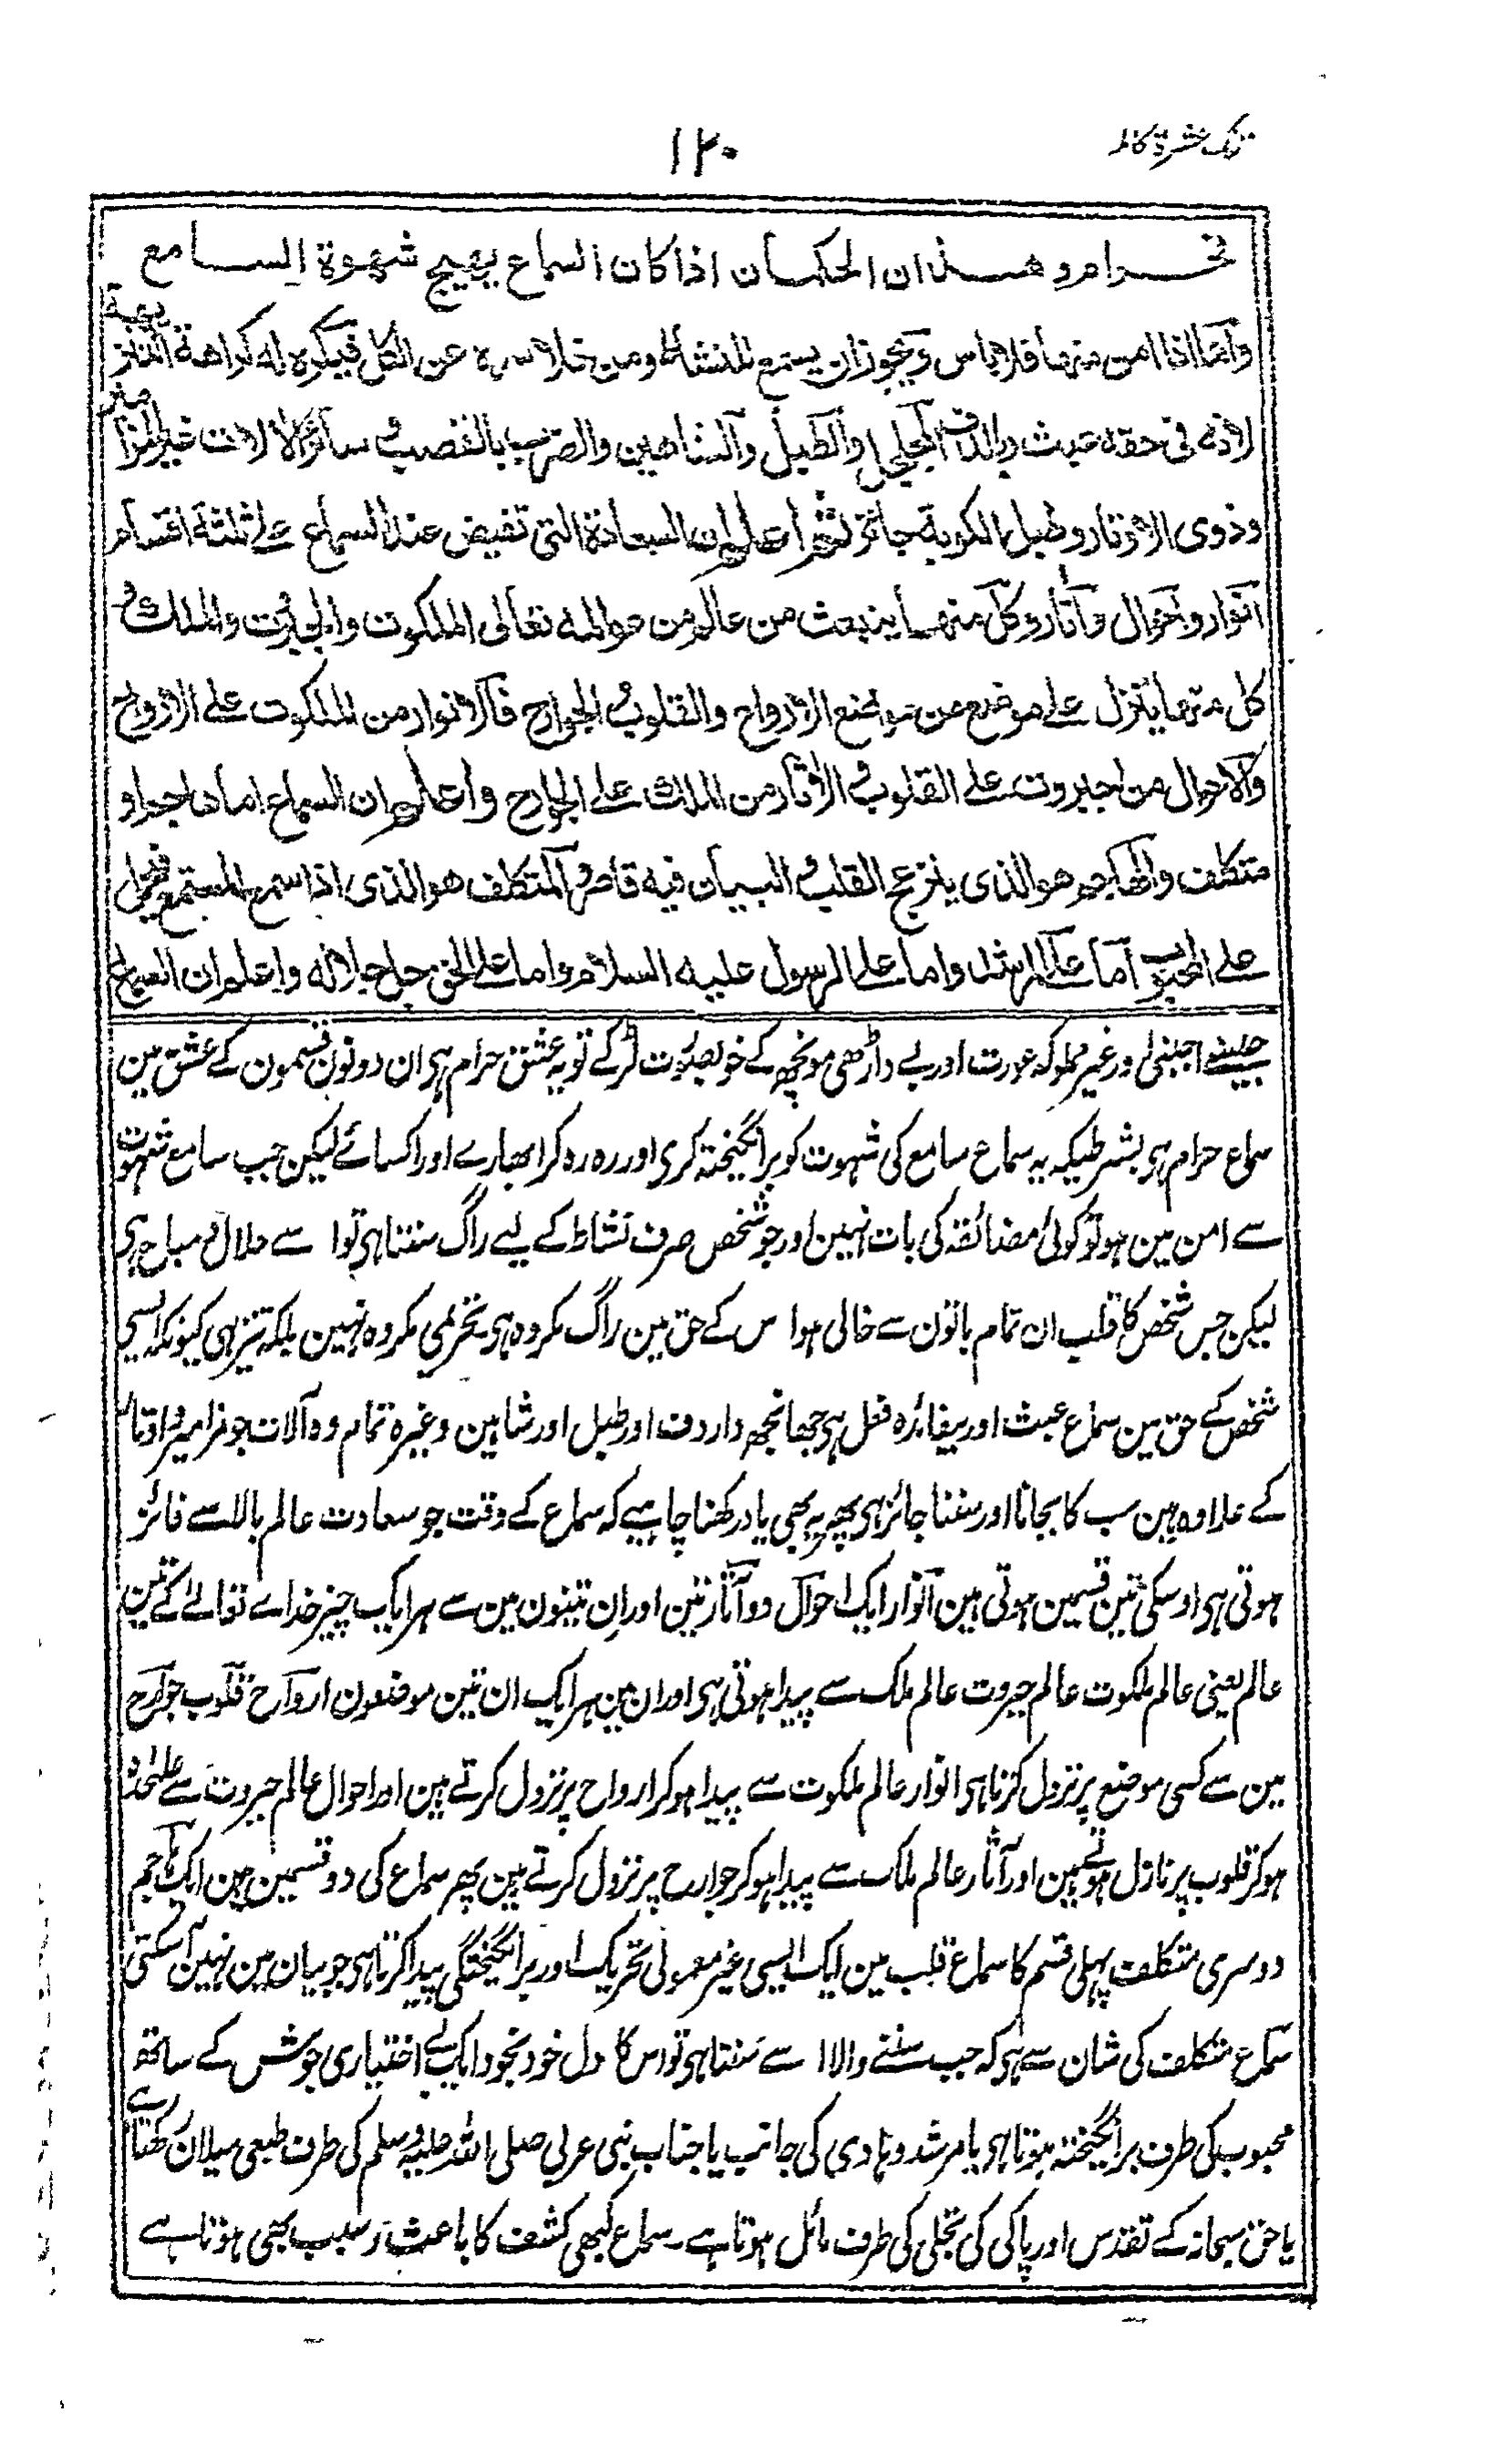 ١٢٠
حرام وهذان الحكمان اذا كان السماع يهيج شهوة السامع
واما اذا امن منها فلا باس ويجوز ان يستمع للنشاط ومن خلا سره عن الكل فيكره له كراهة التنزيهية
لانه فى حقه عبث والدف الجلجلى والطبل والشاهين والضرب بالقصب وسائر الالات غير المزامير
وذوى الاوتار وطبل الكوبة جائز ثم اعلم ان السعادة التى تفيض عند السماع على ثلثة اقسام
انوار واحوال وآثار وكل منها ينبعث من عالم من عوالمه تعالى الملكوت والجبروت والملك و
كل منها ينزل على موضع من مواضع الارواح والقلوب والجوارح فالانوار من الملكوت على الارواح
والاحوال من الجبروت على القلوب والآثار من الملك على الجوارح واعلم ان السماع اما هاجم او
متكلف والهاجم هو الذى ينزعج القلب والبيان فيه قاصر والمتكلف هو الذى اذا سمع المستمع فيحمل
على المحبوب اما على المرشد واما على الرسول عليه السلام واما على الحق جل جلاله واعلم ان السماع
جیسے اجنبی اور غیر مملوکہ عورت اور بے داڑھی مونچھ کے خوبصورت لڑکے تو یہ عشق حرام ہی ان دونون قسمون کے عشق مین
سماع حرام ہی بشرطیکہ یہ سماع سامع کی شہوت کو برانگیختہ کری اور رہ رہ کر ابھارے اور اکسائے لیکن جب سامع شہوت
سے امن مین ہو تو کوئی مضائقہ کی بات نہین اور جو شخص صرف نشاط کے لیے راگ سنتا ہی تو ا سے حلال و مباح ہی
لیکن جس شخص کا قلب ان تمام باتون سے خالی ہو ا س کے حق مین راگ مکروہ ہی تحریمی مکروہ نہین بلکہ تنزیہی کیونکہ ایسی
شخص کے حق مین سماع عبث اور بیفائدہ فعل ہی جھانجھ دار دف اور طبل اور شاہین وغیرہ تمام وہ آلات جو مزامیر و اوتار
کے علاوہ ہین سب کا بجانا اور سننا جائز ہی پھر یہ بھی یاد رکھنا چاہیے کہ سماع کے وقت جو سعادت عالم بالا سے فائز
ہوتی ہی اوسکی تین قسمین ہوتی ہین انوار ایک احوال دو آثار تین اور ان تینون مین سے ہر ایک چیز خداے تعالےٰ کے تین
عالم یعنی عالم ملکوت عالم جبروت عالم ملک سے پیدا ہوتی ہی اور ان مین ہر ایک ان تین موضعون ارواح قلوب جوارح
مین سے کسی موضع پر نزول کرتا ہی انوار عالم ملکوت سے پیدا ہوکر ارواح پر نزول کرتے ہین اور احوال عالم جبروت سے علیحدہ
ہوکر قلوب پر نازل ہوتے ہین اور آثار عالم ملک سے پیدا ہوکر جوارح پر نزول کرتے ہین پھر سماع کی دو قسمین ہین ایک ہاجم
دوسری متکلف پہلی قسم کا سماع قلب مین ایک ایسی غیر معمولی تحریک اور برانگیختگی پیدا کرتا ہی جو بیان مین نہین آسکتی
سماع متکلف کی شان سے ہی کہ جب سننے والا ا سے سنتا ہی تو اس کا دل خود بخود ایک بے اختیاری جوش کے ساتھ
محبوب کی طرف برانگیختہ ہوتا ہی یا مرشد و ہادی کی جانب یا جناب نبی عربی صلی اللہ علیہ وسلم کی طرف طبعی میلان رکھتا ہے
یا حق سبحانہ کے تقدس اور پاکی کی تجلی کی طرف مائل ہوتا ہے ۔ سماع کبھی کشف کا باعث و سبب بھی ہوتا ہے